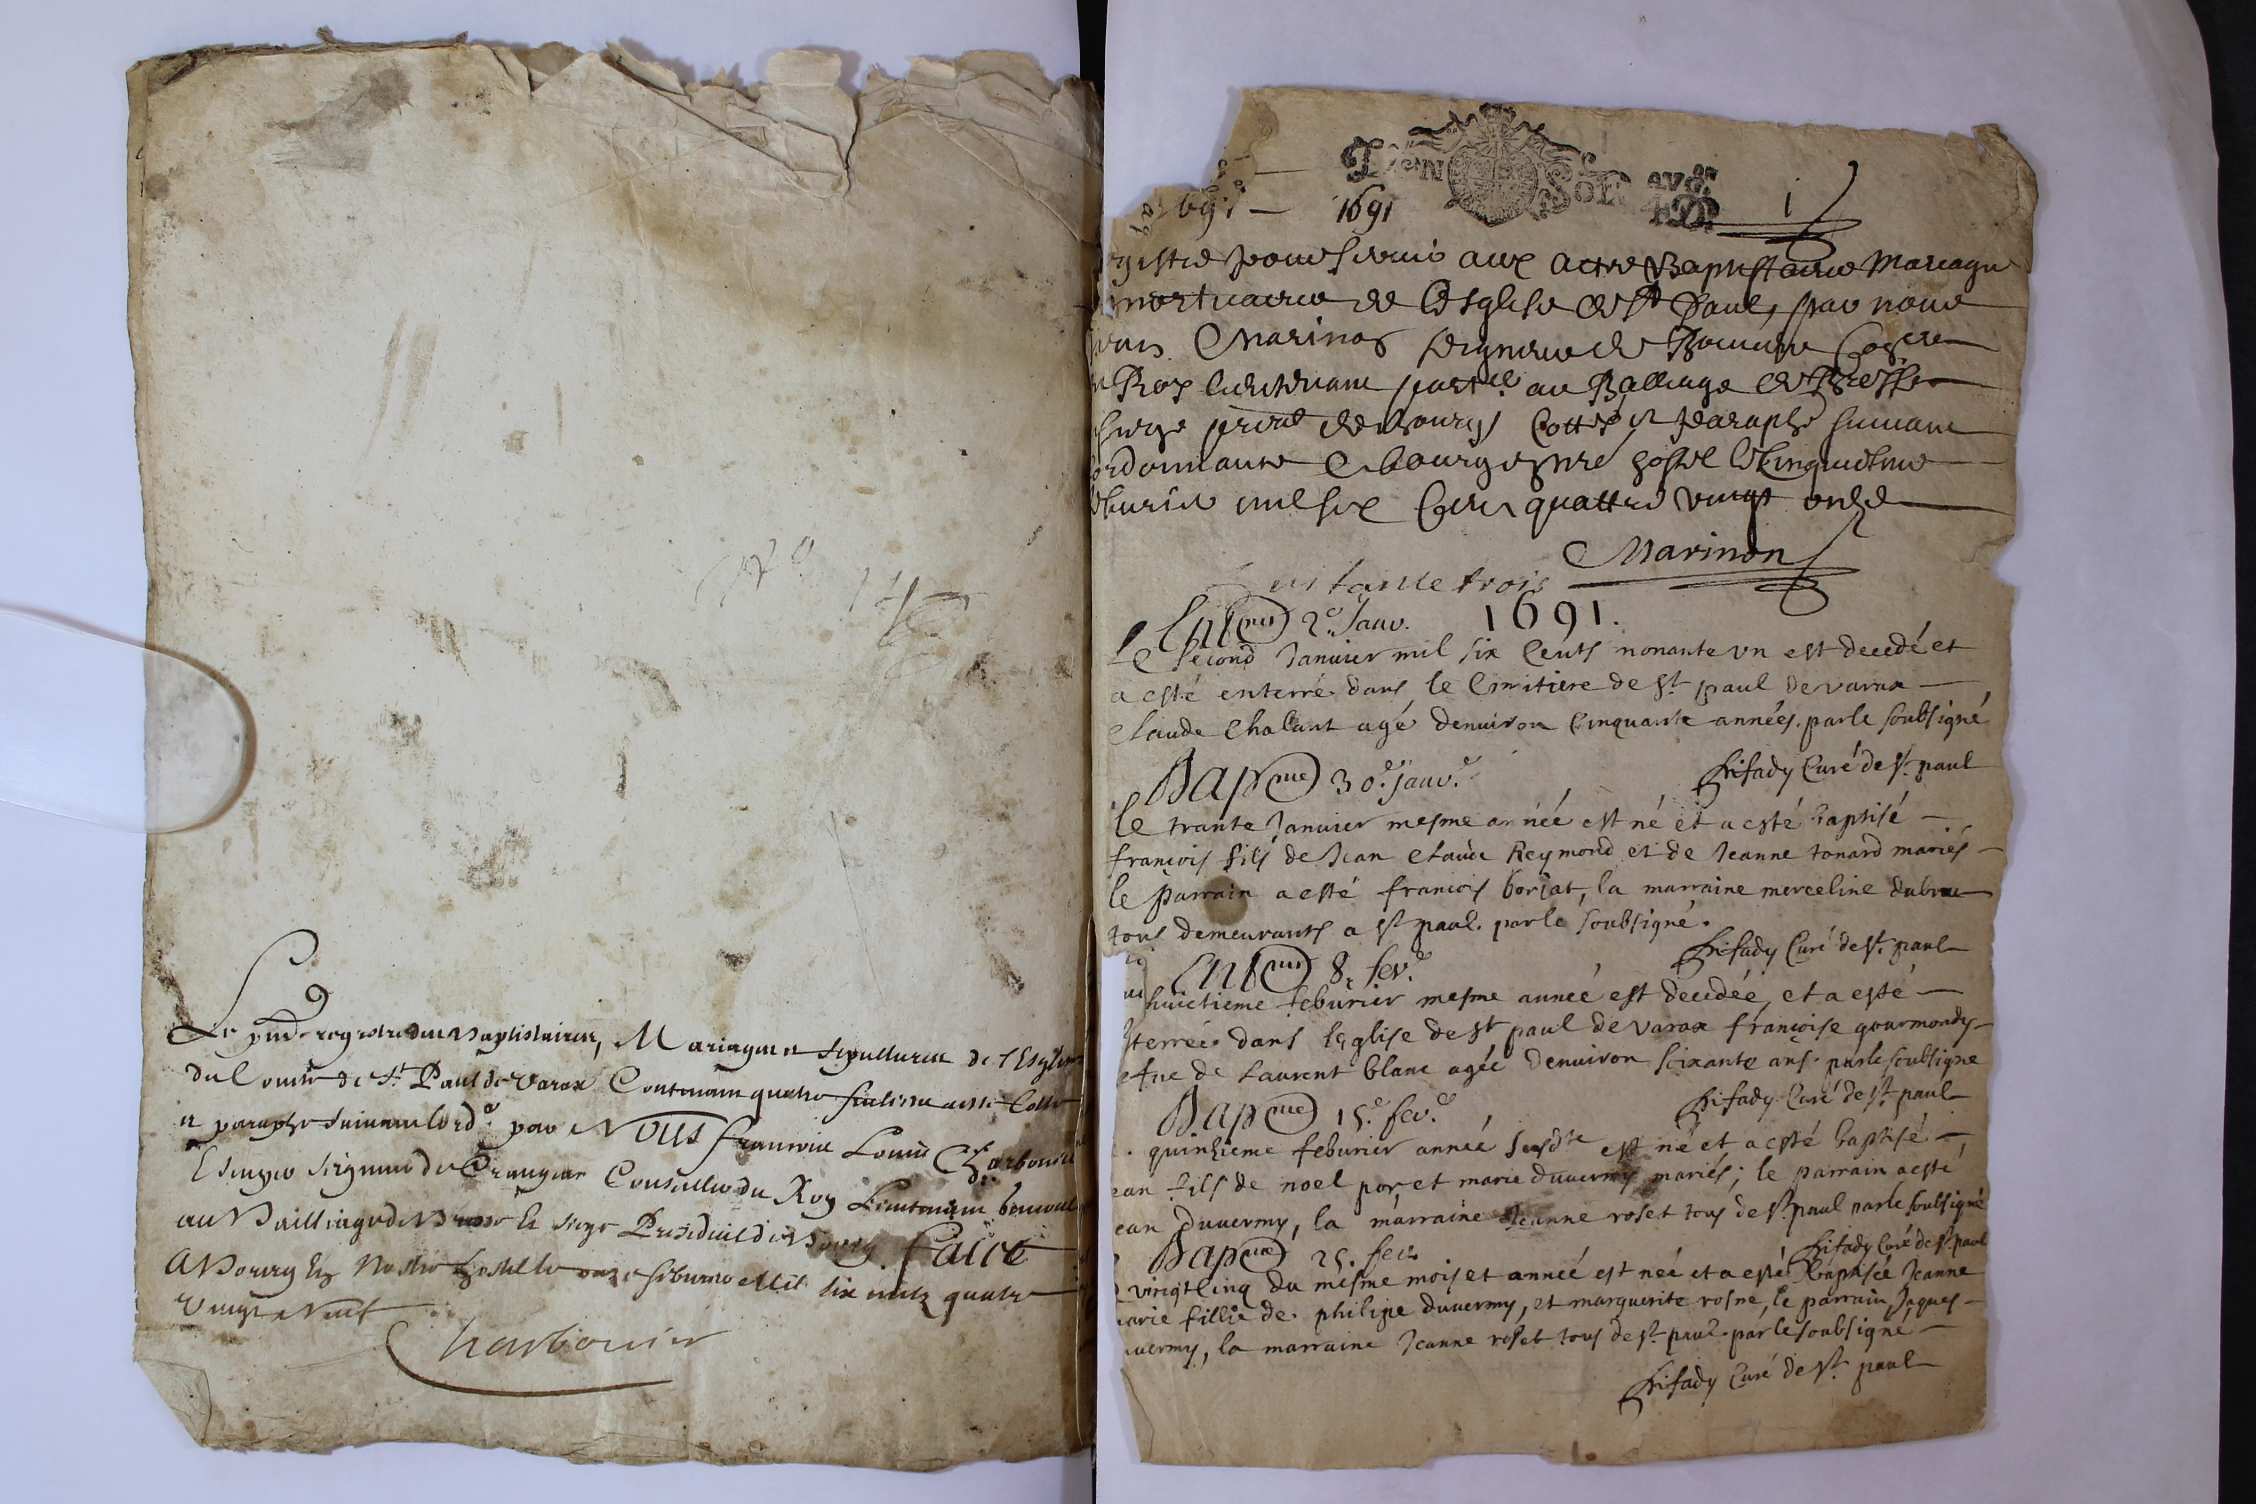 N°
Le pnt registre des Baptistaires, Mariages et sepultures de l'Esglise
du Comté de St Paul de Varax Contenant quatre feulliets
et paraphe suivant lord.e par Nous francois Louis Charbonnier
Escuyer seigneur de Crangeac Conseiller du Roy Lieutenant
au Bailliage de Bresse et siege Presidial de Bourg. Faict
A Bourg En Nostre hostel le onze feburier Mil six cents quatre
Vingt Neuf
Charbonnier
GEN SOL
1691 — 1691 1
gistre pour servir aux actes Baptistaires Mariages
mortuaires de lEsglise de St Paul, par nous
Marinon seigneur de Coner
Roy lieutenant part.el au Balliage de Bresse
siege de Bourg Cotté et paraphé suivant
ordonnance a bourg en nre hostel le Cinquiesme
feburier mil six Cens quattre vingt onze
Marinon
trois
1691.
Ent(ent) 2.e Janv.
Le second Janvier mil six Cents nonante un est decedé et
a esté enterré dans le Cimitiere de st paul de varax —
claude chalant agé denviron Cinquante années. par le soubsigné
hifady Curé de st. paul
Bap(me) 30.e janv.e
le trante Janvier mesme année est né et a esté baptisé —
francois fils de Jean claude Reymond et de Jeanne tonard mariés —
le parrain a esté francois borjat, la marraine merceline
tous demeurants a st paul. par le soubsigné.
hifady Curé de st. paul
Ent(ent) 8. fev.e
huictieme feburier mesme année est decedée, et a esté —
terrée dans leglise de st paul de varax françoise gourmondy —
de Laurent blanc agée denviron soixante ans. par le soubsigne
hifady Curé de st. paul
Bap(me) 15.e fev.e
quinzieme feburier année susdte est né et a esté baptisé —
ean fils de noel por, et marie duvermy mariés; le parrain a esté
ean duvermy, la marraine Jeanne roset tous de st. paul par le soubsigné
hifady Curé de st. paul
Bap(me) 25. fev.
vingt Cinq du mesme mois et année est née et a esté Baptisée Jeanne
arie fillie de philipe duvermy, et marguerite rosne, le parrain Jaques —
uvermy, la marraine Jeanne roset tous de st. paul. par le soubsigné —
hifady Curé de st. paul